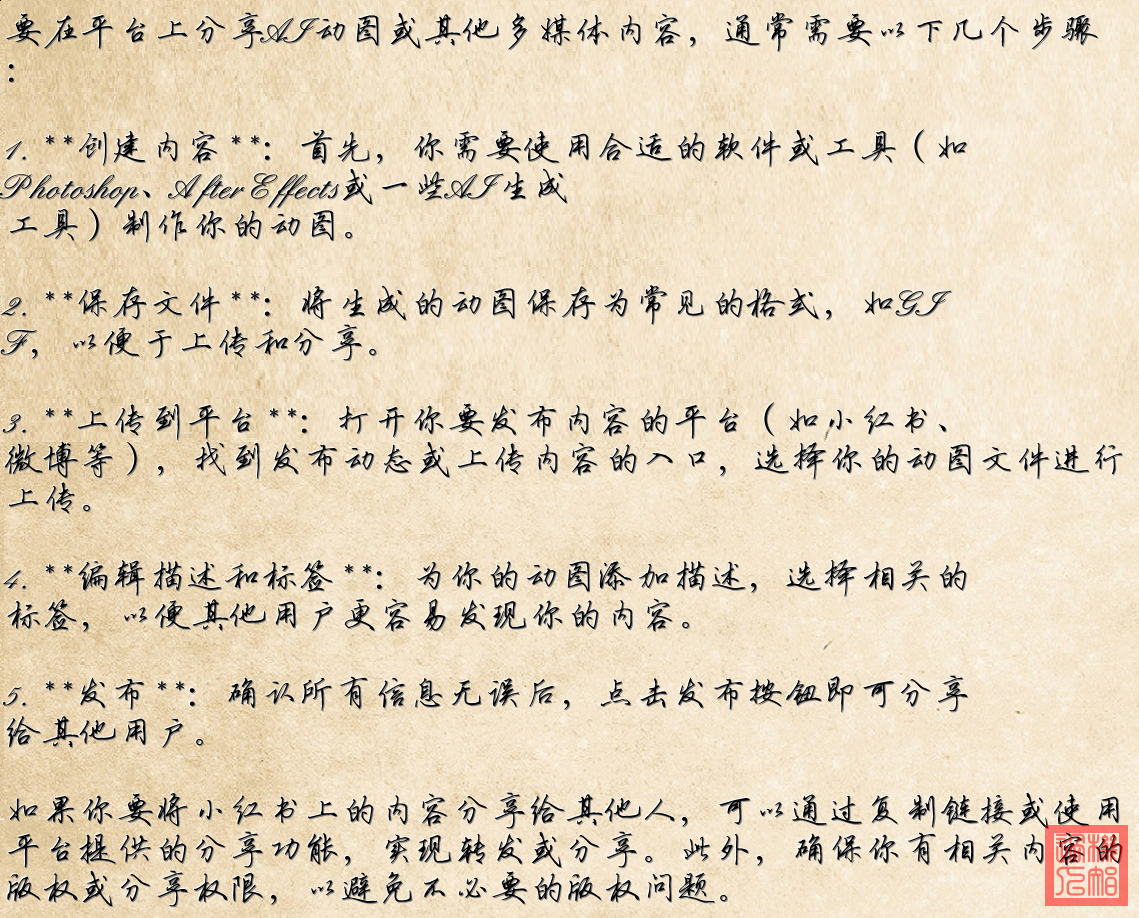 要在平台上分享AI动图或其他多媒体内容，通常需要以下几个步骤
：
1. **创建内容**：首先，你需要使用合适的软件或工具（如
Photoshop、After Effects或一些AI生成
工具）制作你的动图。
2. **保存文件**：将生成的动图保存为常见的格式，如GI
F，以便于上传和分享。
3. **上传到平台**：打开你要发布内容的平台（如小红书、
微博等），找到发布动态或上传内容的入口，选择你的动图文件进行
上传。
4. **编辑描述和标签**：为你的动图添加描述，选择相关的
标签，以便其他用户更容易发现你的内容。
5. **发布**：确认所有信息无误后，点击发布按钮即可分享
给其他用户。
如果你要将小红书上的内容分享给其他人，可以通过复制链接或使用
平台提供的分享功能，实现转发或分享。此外，确保你有相关内容的
版权或分享权限，以避免不必要的版权问题。